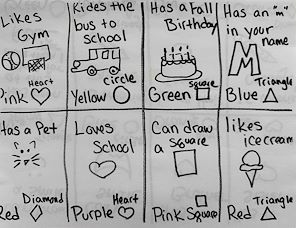 Likes
Gym
Pink Heart
Rides the
bus to
school
Yellow circle
Has a Fall
Birthday
Green Square
Has an "m"
in your
name
M
Blue Triangle
Has a Pet
Red Diamond
Loves
School
Purple Heart
Can draw
a square
Pink Square
likes
ice cream
Red Triangle